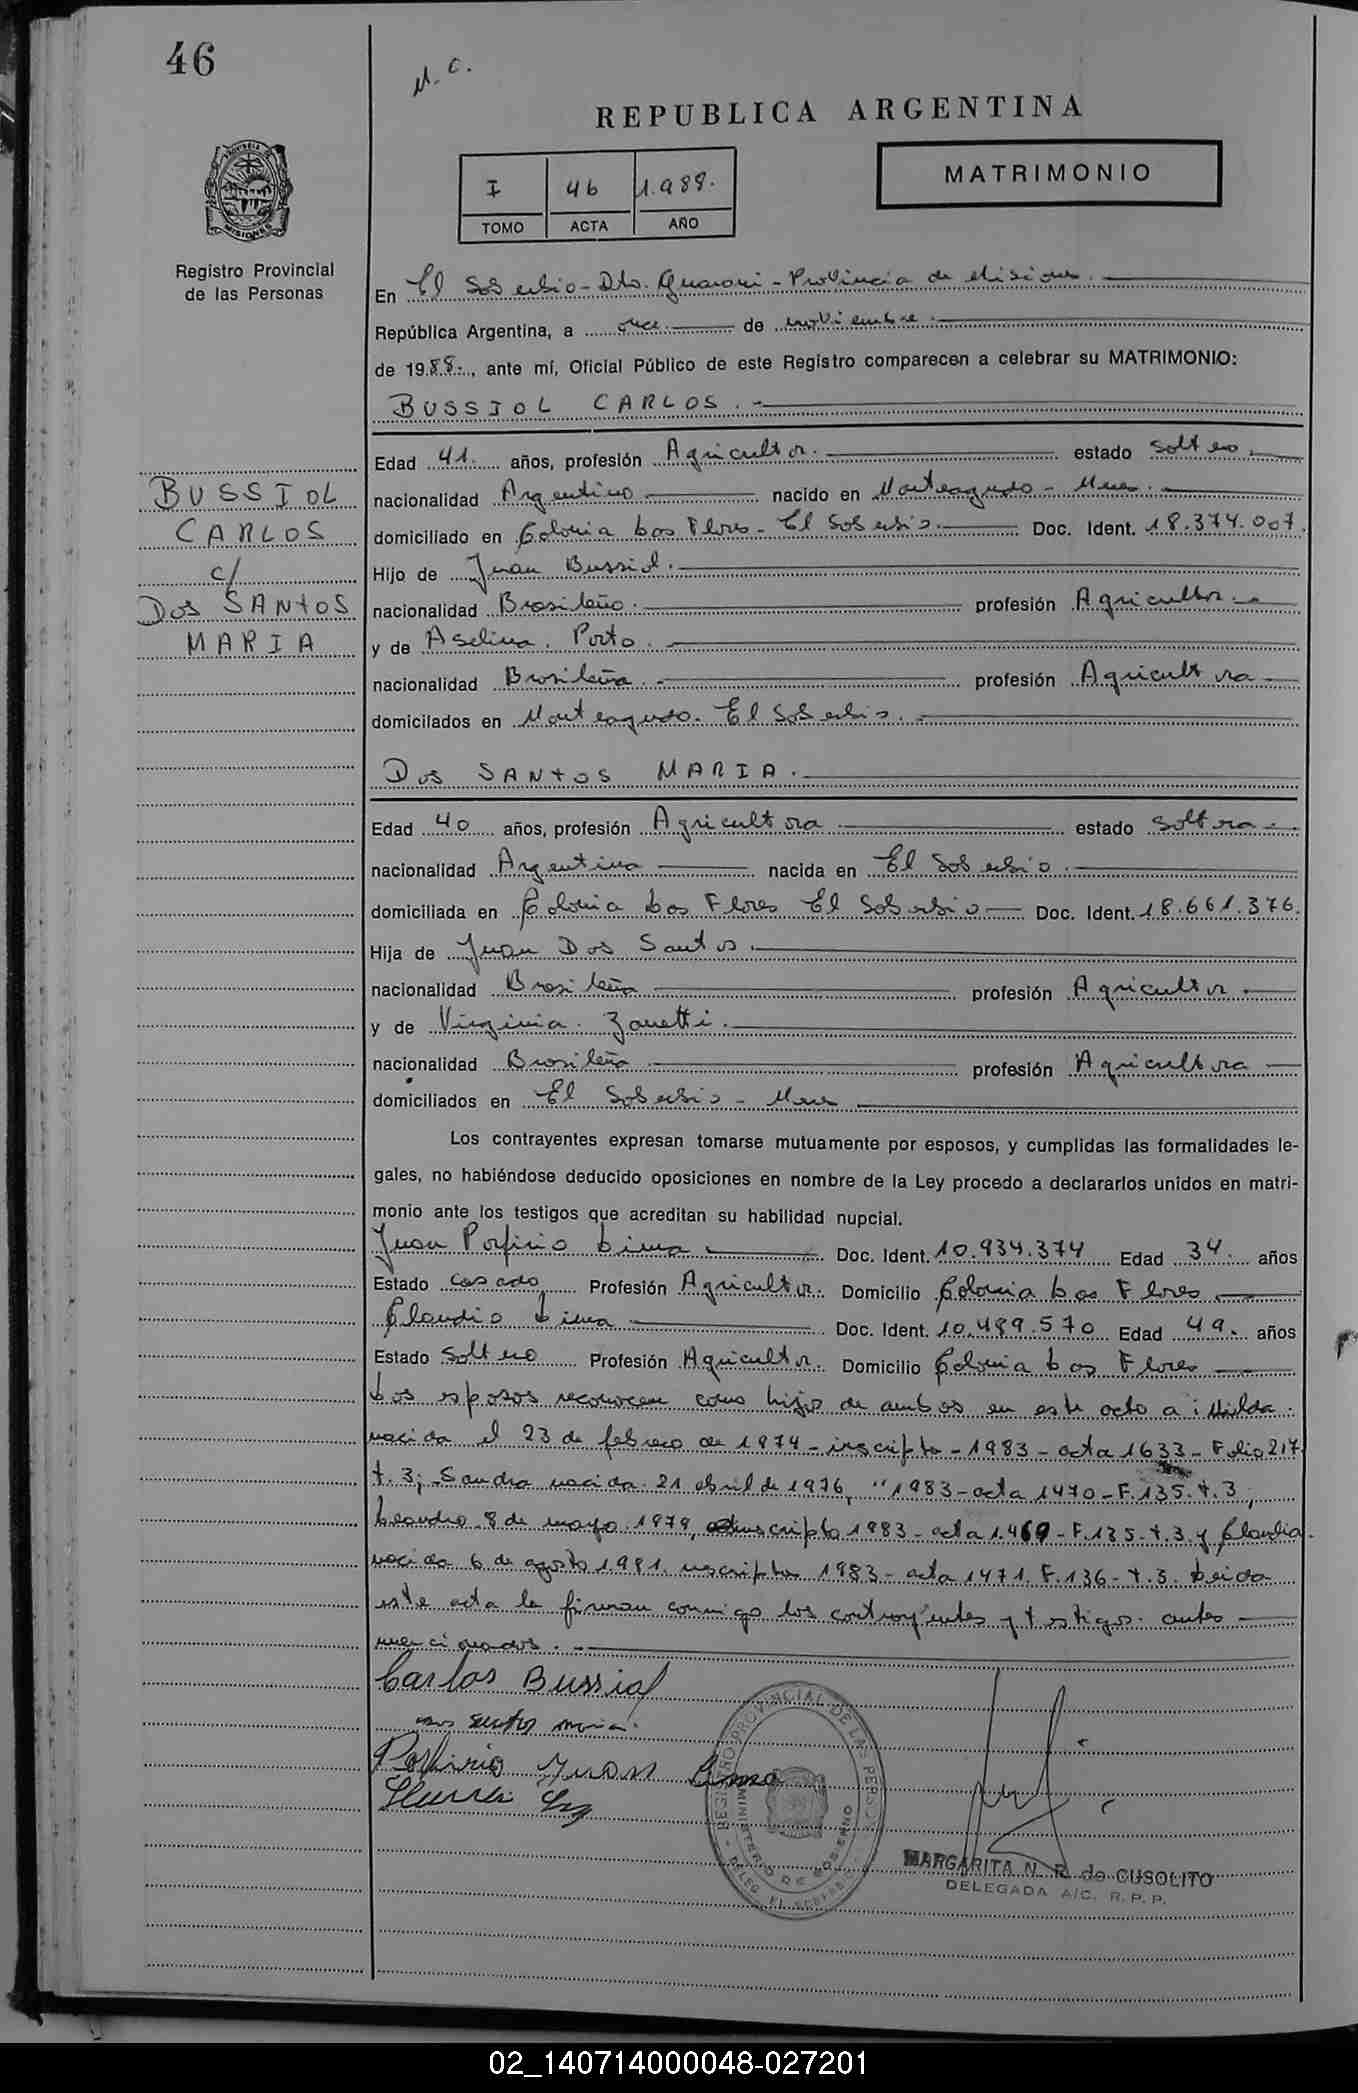 46
M. C.
REPUBLICA ARGENTINA
MATRIMONIO
I 46 1.988.
TOMO ACTA AÑO
PROVINCIA DE MISIONES
Registro Provincial
de las Personas
En El Soberbio - Dto. Guarani - Provincia de Misiones.
República Argentina, a once. de noviembre.
de 1988., ante mí, Oficial Público de este Registro comparecen a celebrar su MATRIMONIO:
BUSSIOL CARLOS. -
BUSSIOL
CARLOS
c/
DOS SANTOS
MARIA
Edad 41. años, profesión Agricultor. estado soltero
nacionalidad Argentino nacido en Monteagudo - Mnes.
domiciliado en Colonia Las Flores - El Soberbio. Doc. Ident. 18.374.007.
Hijo de Juan Bussiol.
nacionalidad Brasileño. profesión Agricultor. -
y de Aselina. Porto.
nacionalidad Brasileña. profesión Agricultora
domicilados en Monteagudo. El Soberbio.
DOS SANTOS MARIA.
Edad 40 años, profesión Agricultora estado soltera -
nacionalidad Argentina nacida en El Soberbio.
domiciliada en Colonia Las Flores El Soberbio Doc. Ident. 18.661.376.
Hija de Juan Dos Santos.
nacionalidad Brasileña profesión Agricultor
y de Virginia. Zanetti.
nacionalidad Brasileña profesión Agricultora
domiciliados en El Soberbio - Mnes
Los contrayentes expresan tomarse mutuamente por esposos, y cumplidas las formalidades le-
gales, no habiéndose deducido oposiciones en nombre de la Ley procedo a declararlos unidos en matri-
monio ante los testigos que acreditan su habilidad nupcial.
Juan Porfirio Lima Doc. Ident. 10.934.374 Edad 34. años
Estado casado Profesión Agricultor. Domicilio Colonia Las Flores
Claudio Lima Doc. Ident. 10.489.570 Edad 49. años
Estado Soltero Profesión Agricultor. Domicilio Colonia Las Flores
Los esposos reconocen como hijos de ambos en este acto a: Nilda.
nacida el 23 de febrero de 1974 - inscripta - 1983 - acta 1633 - Folio 217
t. 3; Sandra nacida 21 abril de 1976, " 1983 - acta 1470 - F. 135. t. 3;
Leandro 8 de mayo 1979, inscripto 1983 - acta 1.469 - F. 135 - t. 3. y Claudia.
nacida 6 de agosto 1981. inscripta 1983 - acta 1471. F. 136 - t. 3. Leida
este acta la firman conmigo los contrayentes y testigos. antes
mencionados. -
Carlos Bussiol
dos santos maria.
Porfirio Juan Lima
REGISTRO PROVINCIAL DE LAS PERSONAS
MINISTERIO DE GOBIERNO
DELEG. EL SOBERBIO
MARGARITA N. R. de CUSOLITO
DELEGADA A/C. R. P. P.
02_140714000048-027201